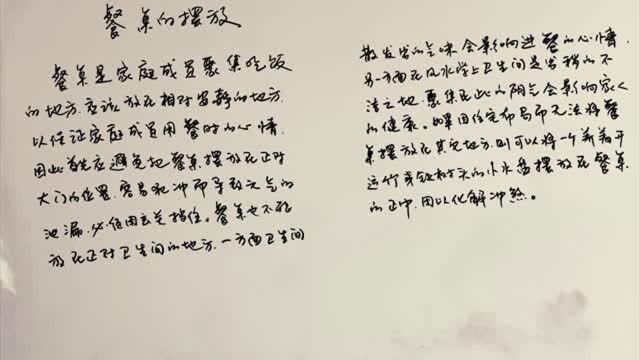 餐桌的摆放
餐桌是家庭成员聚集吃饭
的地方,应该放在相对安静的地方,
以保证家庭成员用餐时的心情,
因此首先应避免把餐桌摆放在正对
大门的位置,容易犯冲而导致元气的
泄漏,必须用玄关挡住。餐桌也不能
放在正对卫生间的地方,一方面卫生间
散发出的气味会影响进餐的心情,
另一方面在风水学上卫生间是古称的不
洁之地,聚集在此的阴气会影响家人
的健康。如果因住宅布局而无法将餐
桌摆放在其它地方,则可以将一个
的小水盘摆放在餐桌
的正中,用以化解冲煞。